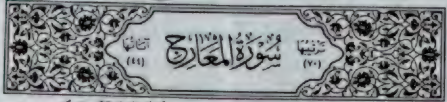 ترتيبها
(٧٠)
سورة المعارج
آياتها
(٤٤)